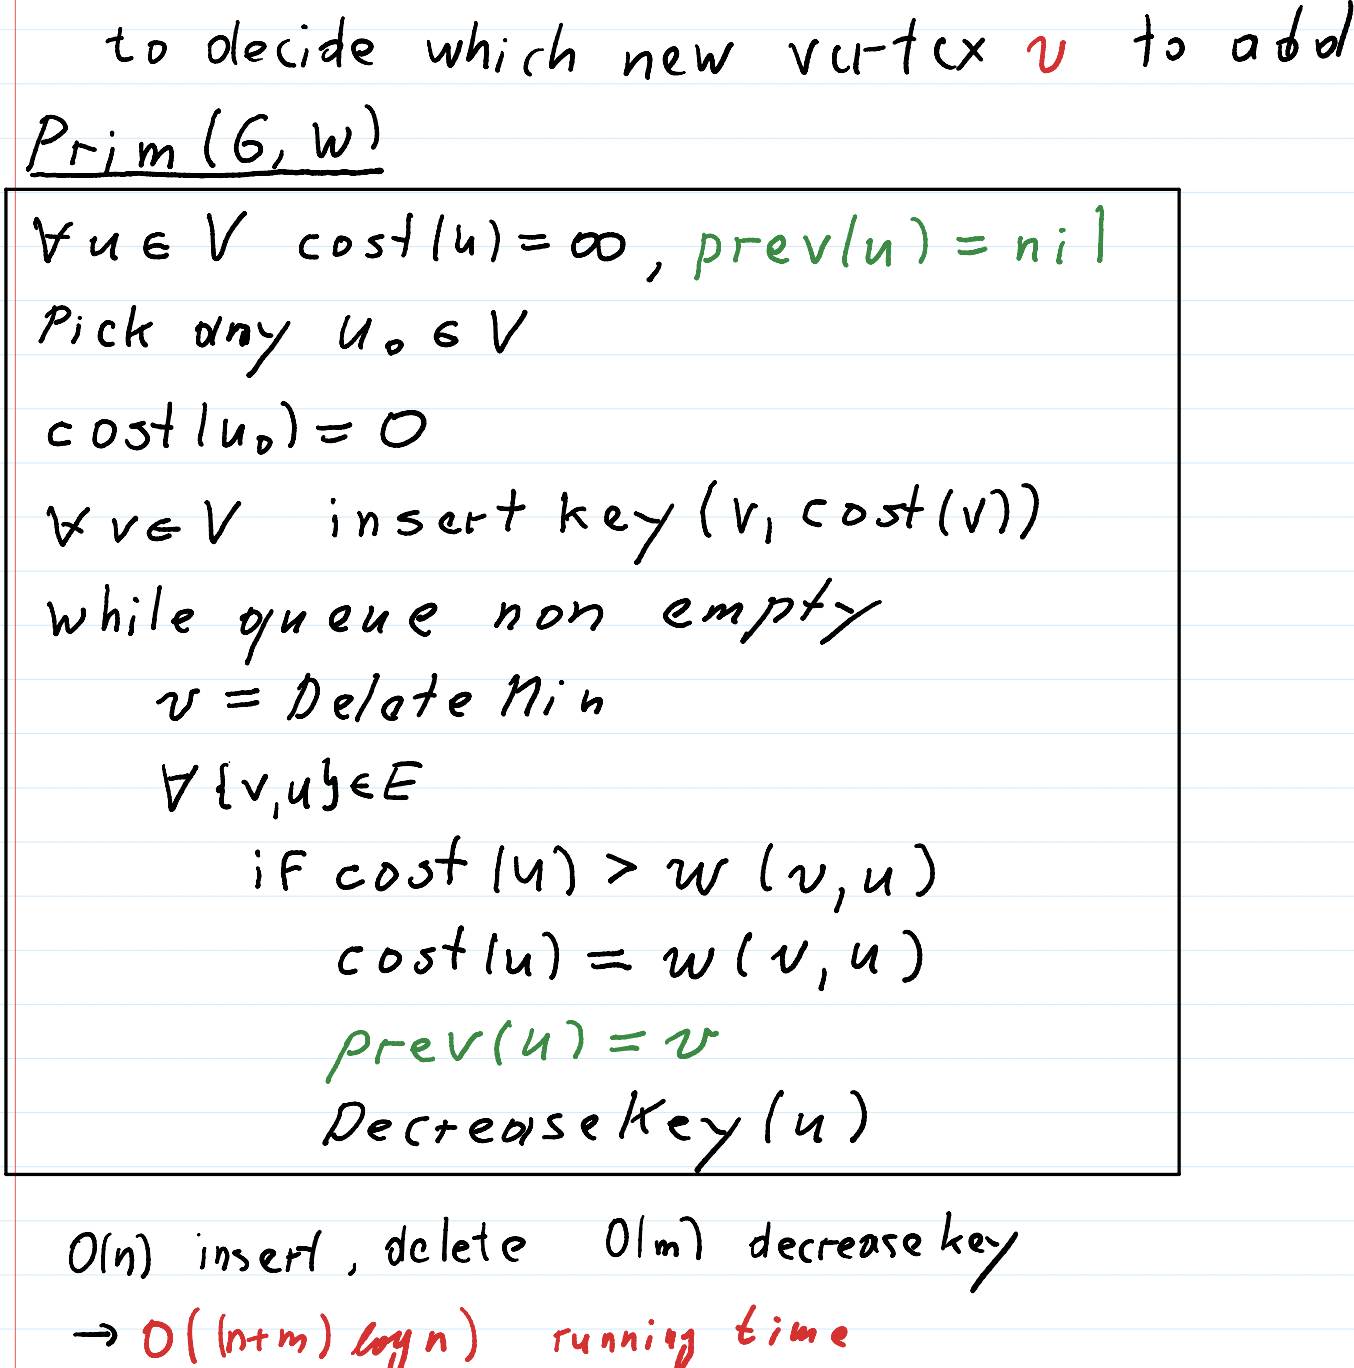 to decide which new vertex v to add
Prim (G, w)
∀ u ∈ V cost(u) = ∞, prev(u) = nil
Pick any u₀ ∈ V
cost(u₀) = 0
∀ v ∈ V insert key (v, cost(v))
while queue non empty
v = Delete Min
∀ {v,u} ∈ E
if cost(u) > w (v, u)
cost(u) = w (v, u)
prev(u) = v
DecreaseKey(u)
O(n) insert, delete O(m) decrease key
→ O((n+m) log n) running time